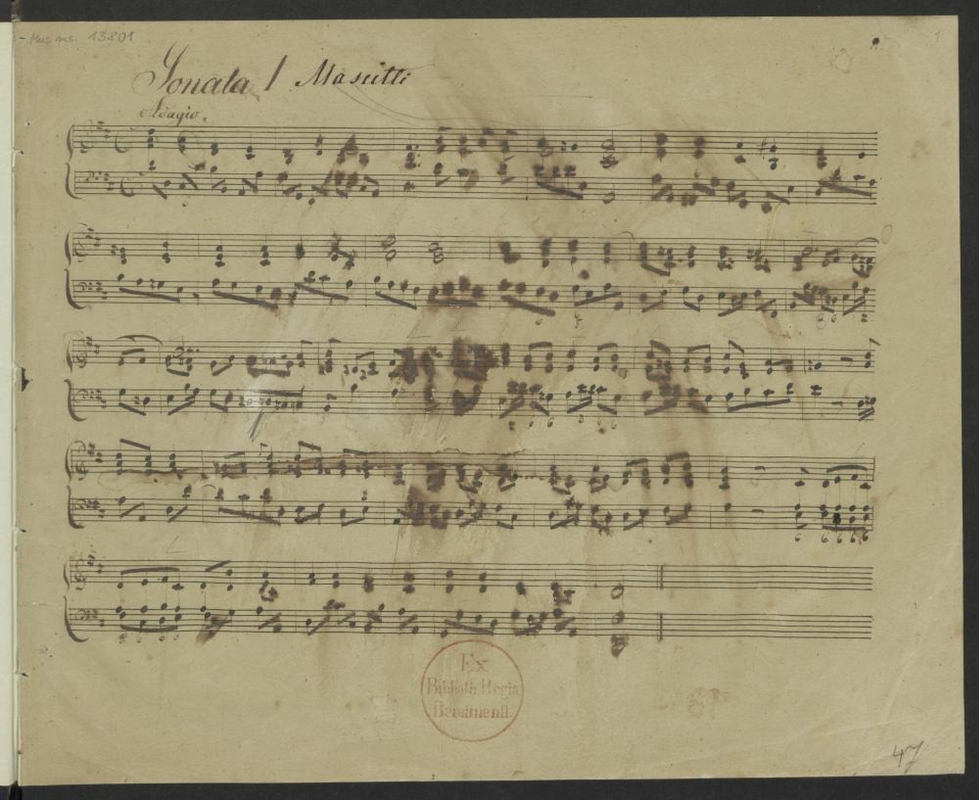 Mus ms. 13801
1
Sonata 1 Mascitti
Adagio.
Ex
Biblioth. Regia
Berolinensi.
47